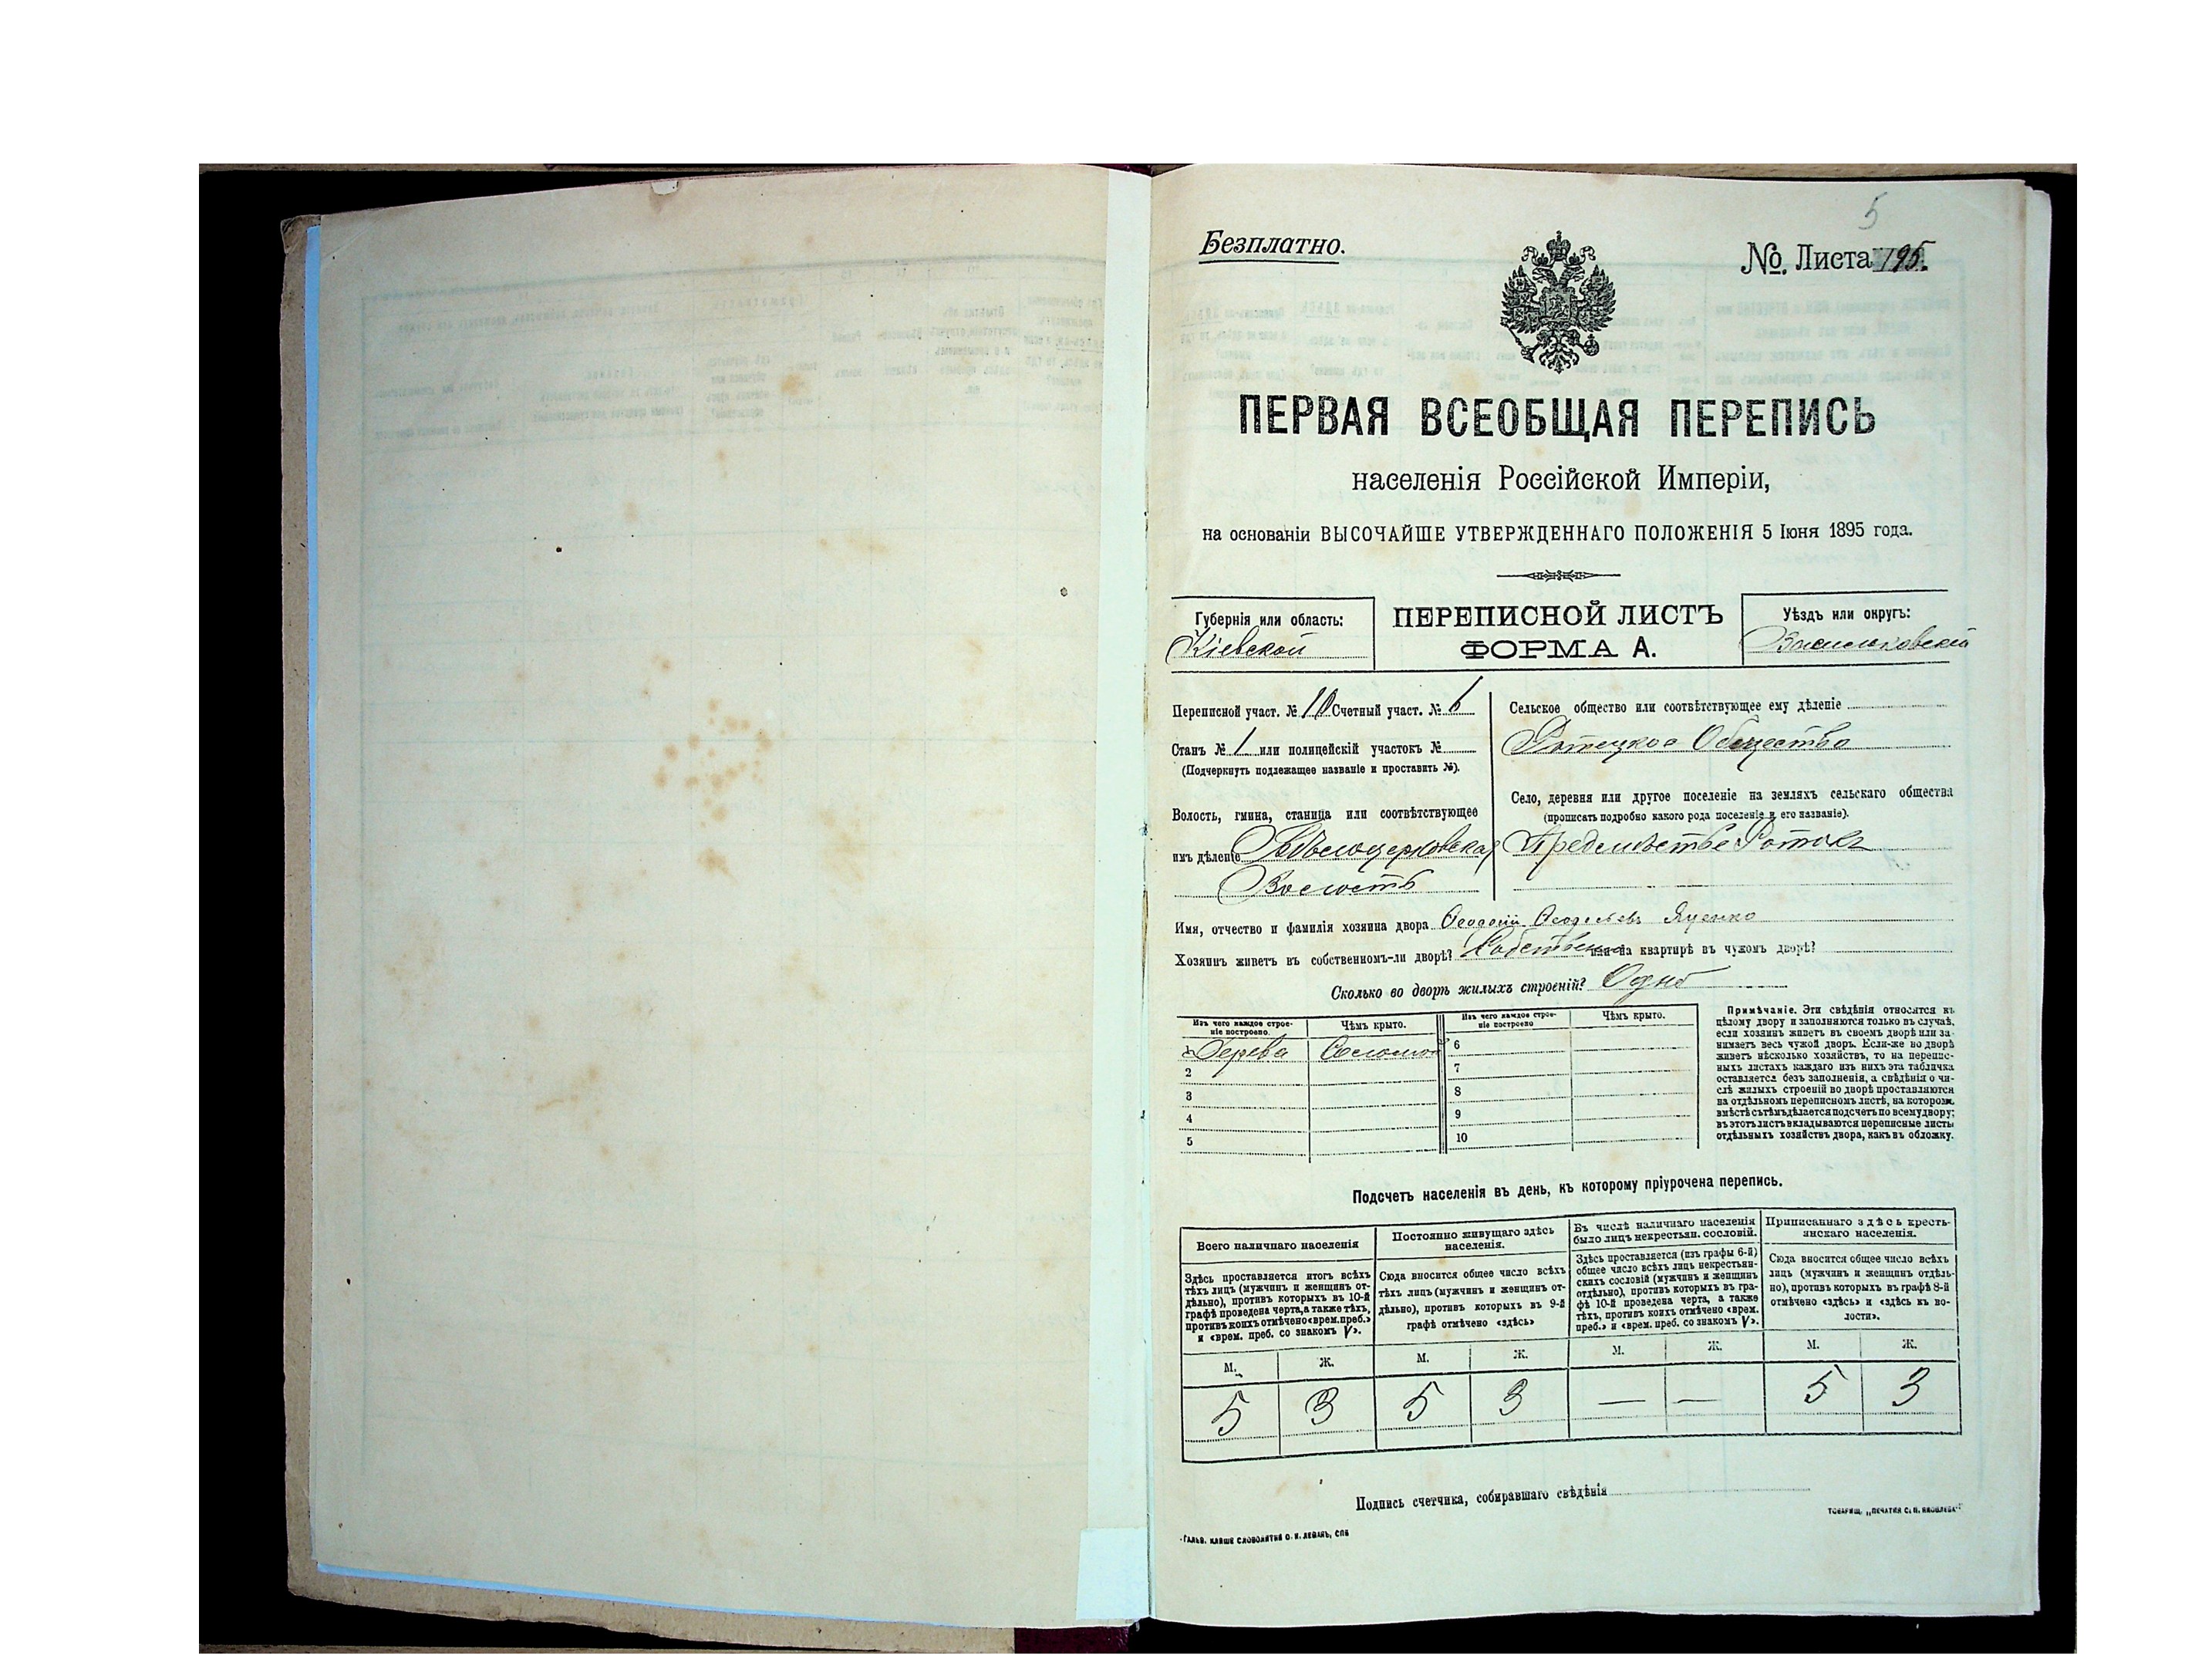 5
Безплатно.
№. Листа 195.
ПЕРВАЯ ВСЕОБЩАЯ ПЕРЕПИСЬ
населенія Россійской Имперіи,
на основаніи ВЫСОЧАЙШЕ УТВЕРЖДЕННАГО ПОЛОЖЕНІЯ 5 Іюня 1895 года.
Губернія или область:
Кіевской
ПЕРЕПИСНОЙ ЛИСТЪ
ФОРМА А.
Уѣздъ или округъ:
Васильковскій
Переписной участ. № 10 Счетный участ. № 6
Станъ № 1 или полицейскій участокъ №
(Подчеркнуть подлежащее названіе и проставить №).
Волость, гмина, станица или соотвѣтствующее
имъ дѣленіе Бѣлоцерковская
Волость
Сельское общество или соотвѣтствующее ему дѣленіе
Ротецкое Общество
Село, деревня или другое поселеніе на земляхъ сельскаго общества
(прописать подробно какого рода поселеніе и его названіе).
Предмѣстье Ротокъ
Имя, отчество и фамилія хозяина двора Ѳеодосій Яценко
Хозяинъ живетъ въ собственномъ-ли дворѣ? или на квартирѣ въ чужомъ дворѣ?
Сколько во дворѣ жилыхъ строеній? Одно
Изъ чего каждое строе-
ніе построено.
Чѣмъ крыто.
Изъ чего каждое строе-
ніе построено
Чѣмъ крыто.
1 Дерева Соломой 6
2 7
3 8
4 9
5 10
Примѣчаніе. Эти свѣдѣнія относятся къ
цѣлому двору и заполняются только въ случаѣ,
если хозяинъ живетъ въ своемъ дворѣ или за-
нимаетъ весь чужой дворъ. Если-же во дворѣ
живетъ нѣсколько хозяйствъ, то на перепис-
ныхъ листахъ каждаго изъ нихъ эта табличка
оставляется безъ заполненія, а свѣдѣнія о чи-
слѣ жилыхъ строеній во дворѣ проставляются
на отдѣльномъ переписномъ листѣ, на которомъ
вмѣстѣ съ тѣмъ дѣлается подсчетъ по всему двору;
въ этотъ листъ вкладываются переписные листы
отдѣльныхъ хозяйствъ двора, какъ въ обложку.
Подсчетъ населенія въ день, къ которому пріурочена перепись.
Всего наличнаго населенія
Здѣсь проставляется итогъ всѣхъ
тѣхъ лицъ (мужчинъ и женщинъ от-
дѣльно), противъ которыхъ въ 10-й
графѣ проведена черта, а также тѣхъ,
противъ коихъ отмѣчено «врем. преб.»
и «врем. преб. со знакомъ V».
Постоянно живущаго здѣсь
населенія.
Сюда вносится общее число всѣхъ
тѣхъ лицъ (мужчинъ и женщинъ от-
дѣльно), противъ которыхъ въ 9-й
графѣ отмѣчено «здѣсь»
Въ числѣ наличнаго населенія
было лицъ некрестьян. сословій.
Здѣсь проставляется (изъ графы 6-й)
общее число всѣхъ лицъ некрестьян-
скихъ сословій (мужчинъ и женщинъ
отдѣльно), противъ которыхъ въ гра-
фѣ 10-й проведена черта, а также
тѣхъ, противъ коихъ отмѣчено «врем.
преб.» и «врем. преб. со знакомъ V».
Приписаннаго здѣсь кресть-
янскаго населенія.
Сюда вносится общее число всѣхъ
лицъ (мужчинъ и женщинъ отдѣль-
но), противъ которыхъ въ графѣ 8-й
отмѣчено «здѣсь» и «здѣсь въ во-
лости».
М. Ж. М. Ж. М. Ж. М. Ж.
5 3 5 3 — — 5 3
Подпись счетчика, собиравшаго свѣдѣнія
ТОВАРИЩ. „ПЕЧАТНЯ С. П. ЯКОВЛЕВА“
ГАЛЬВ. КЛИШЕ СЛОВОЛИТНИ О. И. ЛЕМАНЪ, СПБ